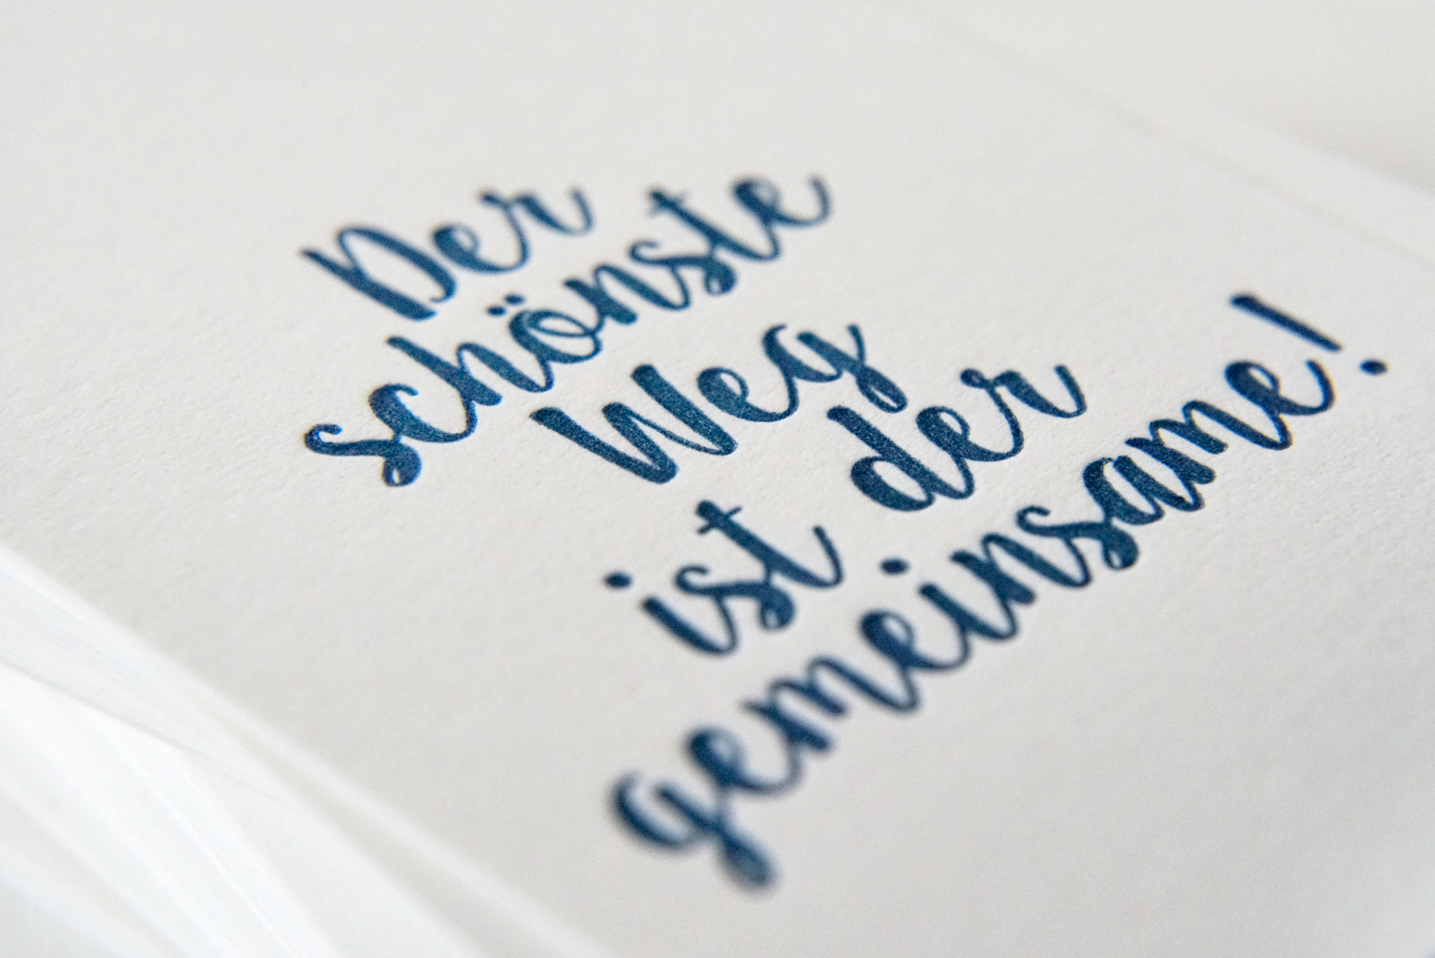 Der
schönste
Weg
ist der
gemeinsame!